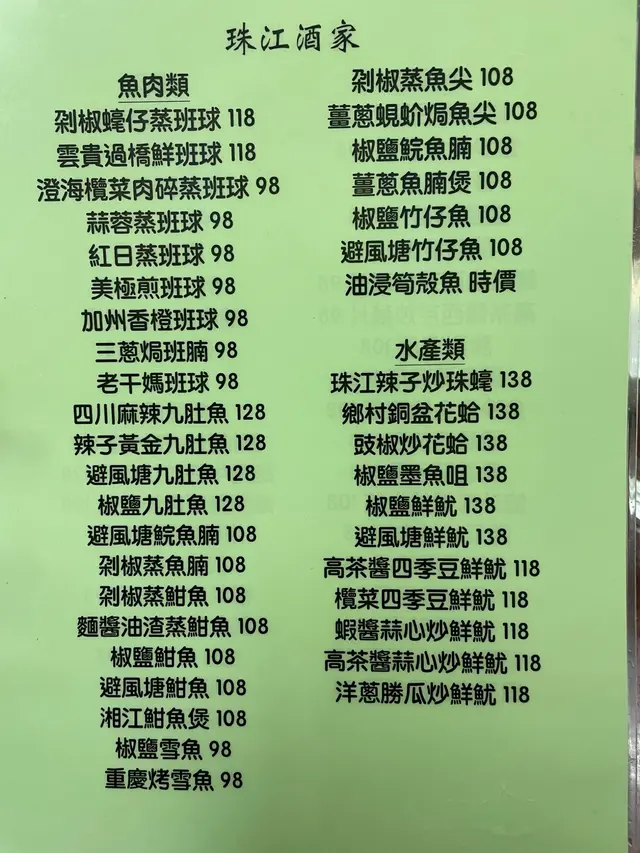 珠江酒家
魚肉類
剁椒蠔仔蒸班球 118
雲貴過橋鮮班球 118
澄海欖菜肉碎蒸班球 98
蒜蓉蒸班球 98
紅日蒸班球 98
美極煎班球 98
加州香橙班球 98
三蔥焗班腩 98
老干媽班球 98
四川麻辣九肚魚 128
辣子黃金九肚魚 128
避風塘九肚魚 128
椒鹽九肚魚 128
避風塘鯇魚腩 108
剁椒蒸魚腩 108
剁椒蒸魽魚 108
麵醬油渣蒸魽魚 108
椒鹽魽魚 108
避風塘魽魚 108
湘江魽魚煲 108
椒鹽雪魚 98
重慶烤雪魚 98
剁椒蒸魚尖 108
薑蔥蜆蚧焗魚尖 108
椒鹽鯇魚腩 108
薑蔥魚腩煲 108
椒鹽竹仔魚 108
避風塘竹仔魚 108
油浸筍殼魚 時價
水產類
珠江辣子炒珠蠔 138
鄉村銅盆花蛤 138
豉椒炒花蛤 138
椒鹽墨魚咀 138
椒鹽鮮魷 138
避風塘鮮魷 138
高茶醬四季豆鮮魷 118
欖菜四季豆鮮魷 118
蝦醬蒜心炒鮮魷 118
高茶醬蒜心炒鮮魷 118
洋蔥勝瓜炒鮮魷 118